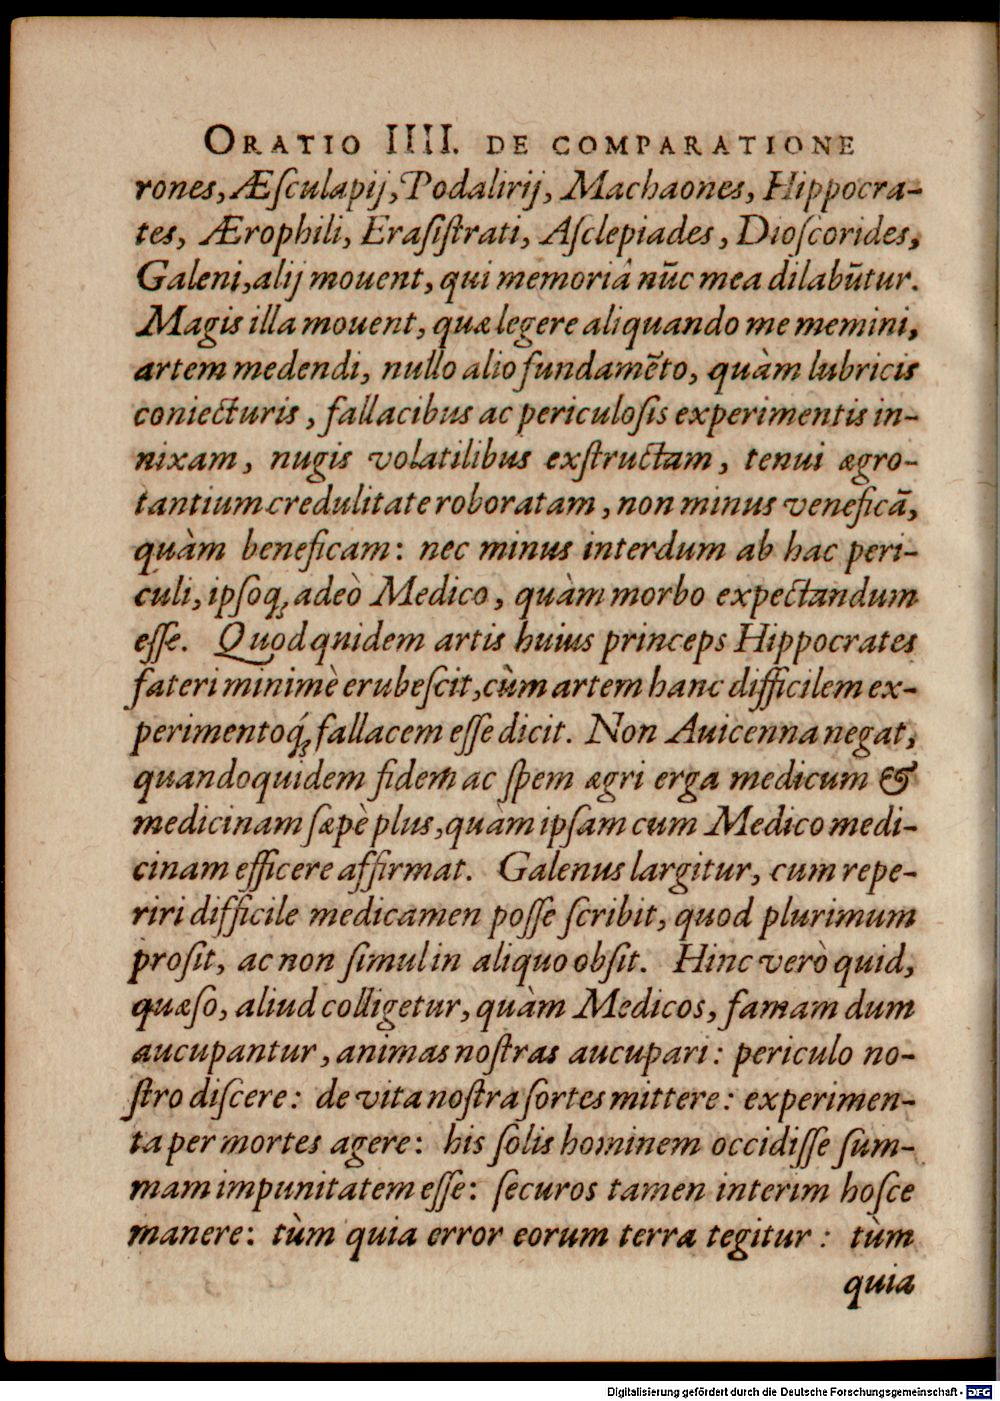 ORATIO IIII. DE COMPARATIONE
rones, Æſculapij, Podalirij, Machaones, Hippocra-
tes, Ærophili, Eraſiſtrati, Aſclepiades, Dioſcorides,
Galeni, alij mouent, qui memoriâ nūc mea dilabūtur.
Magis illa mouent, quæ legere aliquando me memini,
artem medendi, nullo alio fundamẽto, quàm lubricis
coniecturis, fallacibus ac periculoſis experimentis in-
nixam, nugis volatilibus exſtructam, tenui ægro-
tantium credulitate roboratam, non minus veneficā,
quàm beneficam: nec minus interdum ab hac peri-
culi, ipſoq; adeò Medico, quàm morbo expectandum
eſſe. Quod quidem artis huius princeps Hippocrates
fateri minimè erubeſcit, cùm artem hanc difficilem ex-
perimentoq́; fallacem eſſe dicit. Non Auicenna negat,
quandoquidem fidem ac ſpem ægri erga medicum &
medicinam ſæpè plus, quàm ipſam cum Medico medi-
cinam efficere affirmat. Galenus largitur, cum repe-
riri difficile medicamen poſſe ſcribit, quod plurimum
proſit, ac non ſimul in aliquo obſit. Hinc verò quid,
quæſo, aliud colligetur, quàm Medicos, famam dum
aucupantur, animas noſtras aucupari: periculo no-
ſtro diſcere: de vita noſtra ſortes mittere: experimen-
ta per mortes agere: his ſolis hominem occidiſſe ſum-
mam impunitatem eſſe: ſecuros tamen interim hoſce
manere: tùm quia error eorum terra tegitur: tùm
quia
Digitalisierung gefördert durch die Deutsche Forschungsgemeinschaft - DFG